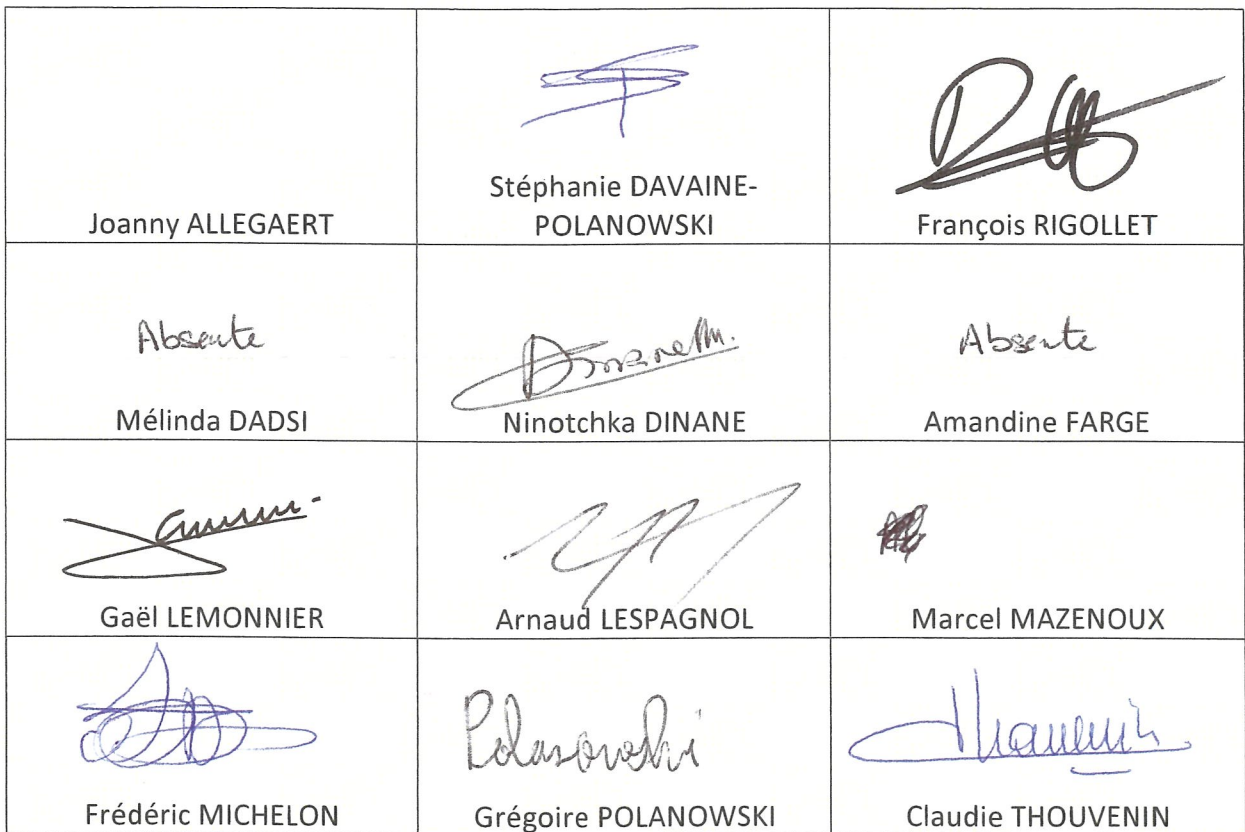 Joanny ALLEGAERT
Stéphanie DAVAINE-
POLANOWSKI
François RIGOLLET
Absente
Mélinda DADSI
Ninotchka DINANE
Absente
Amandine FARGE
Gaël LEMONNIER
Arnaud LESPAGNOL
Marcel MAZENOUX
Frédéric MICHELON
Polanowski
Grégoire POLANOWSKI
Thouvenin
Claudie THOUVENIN